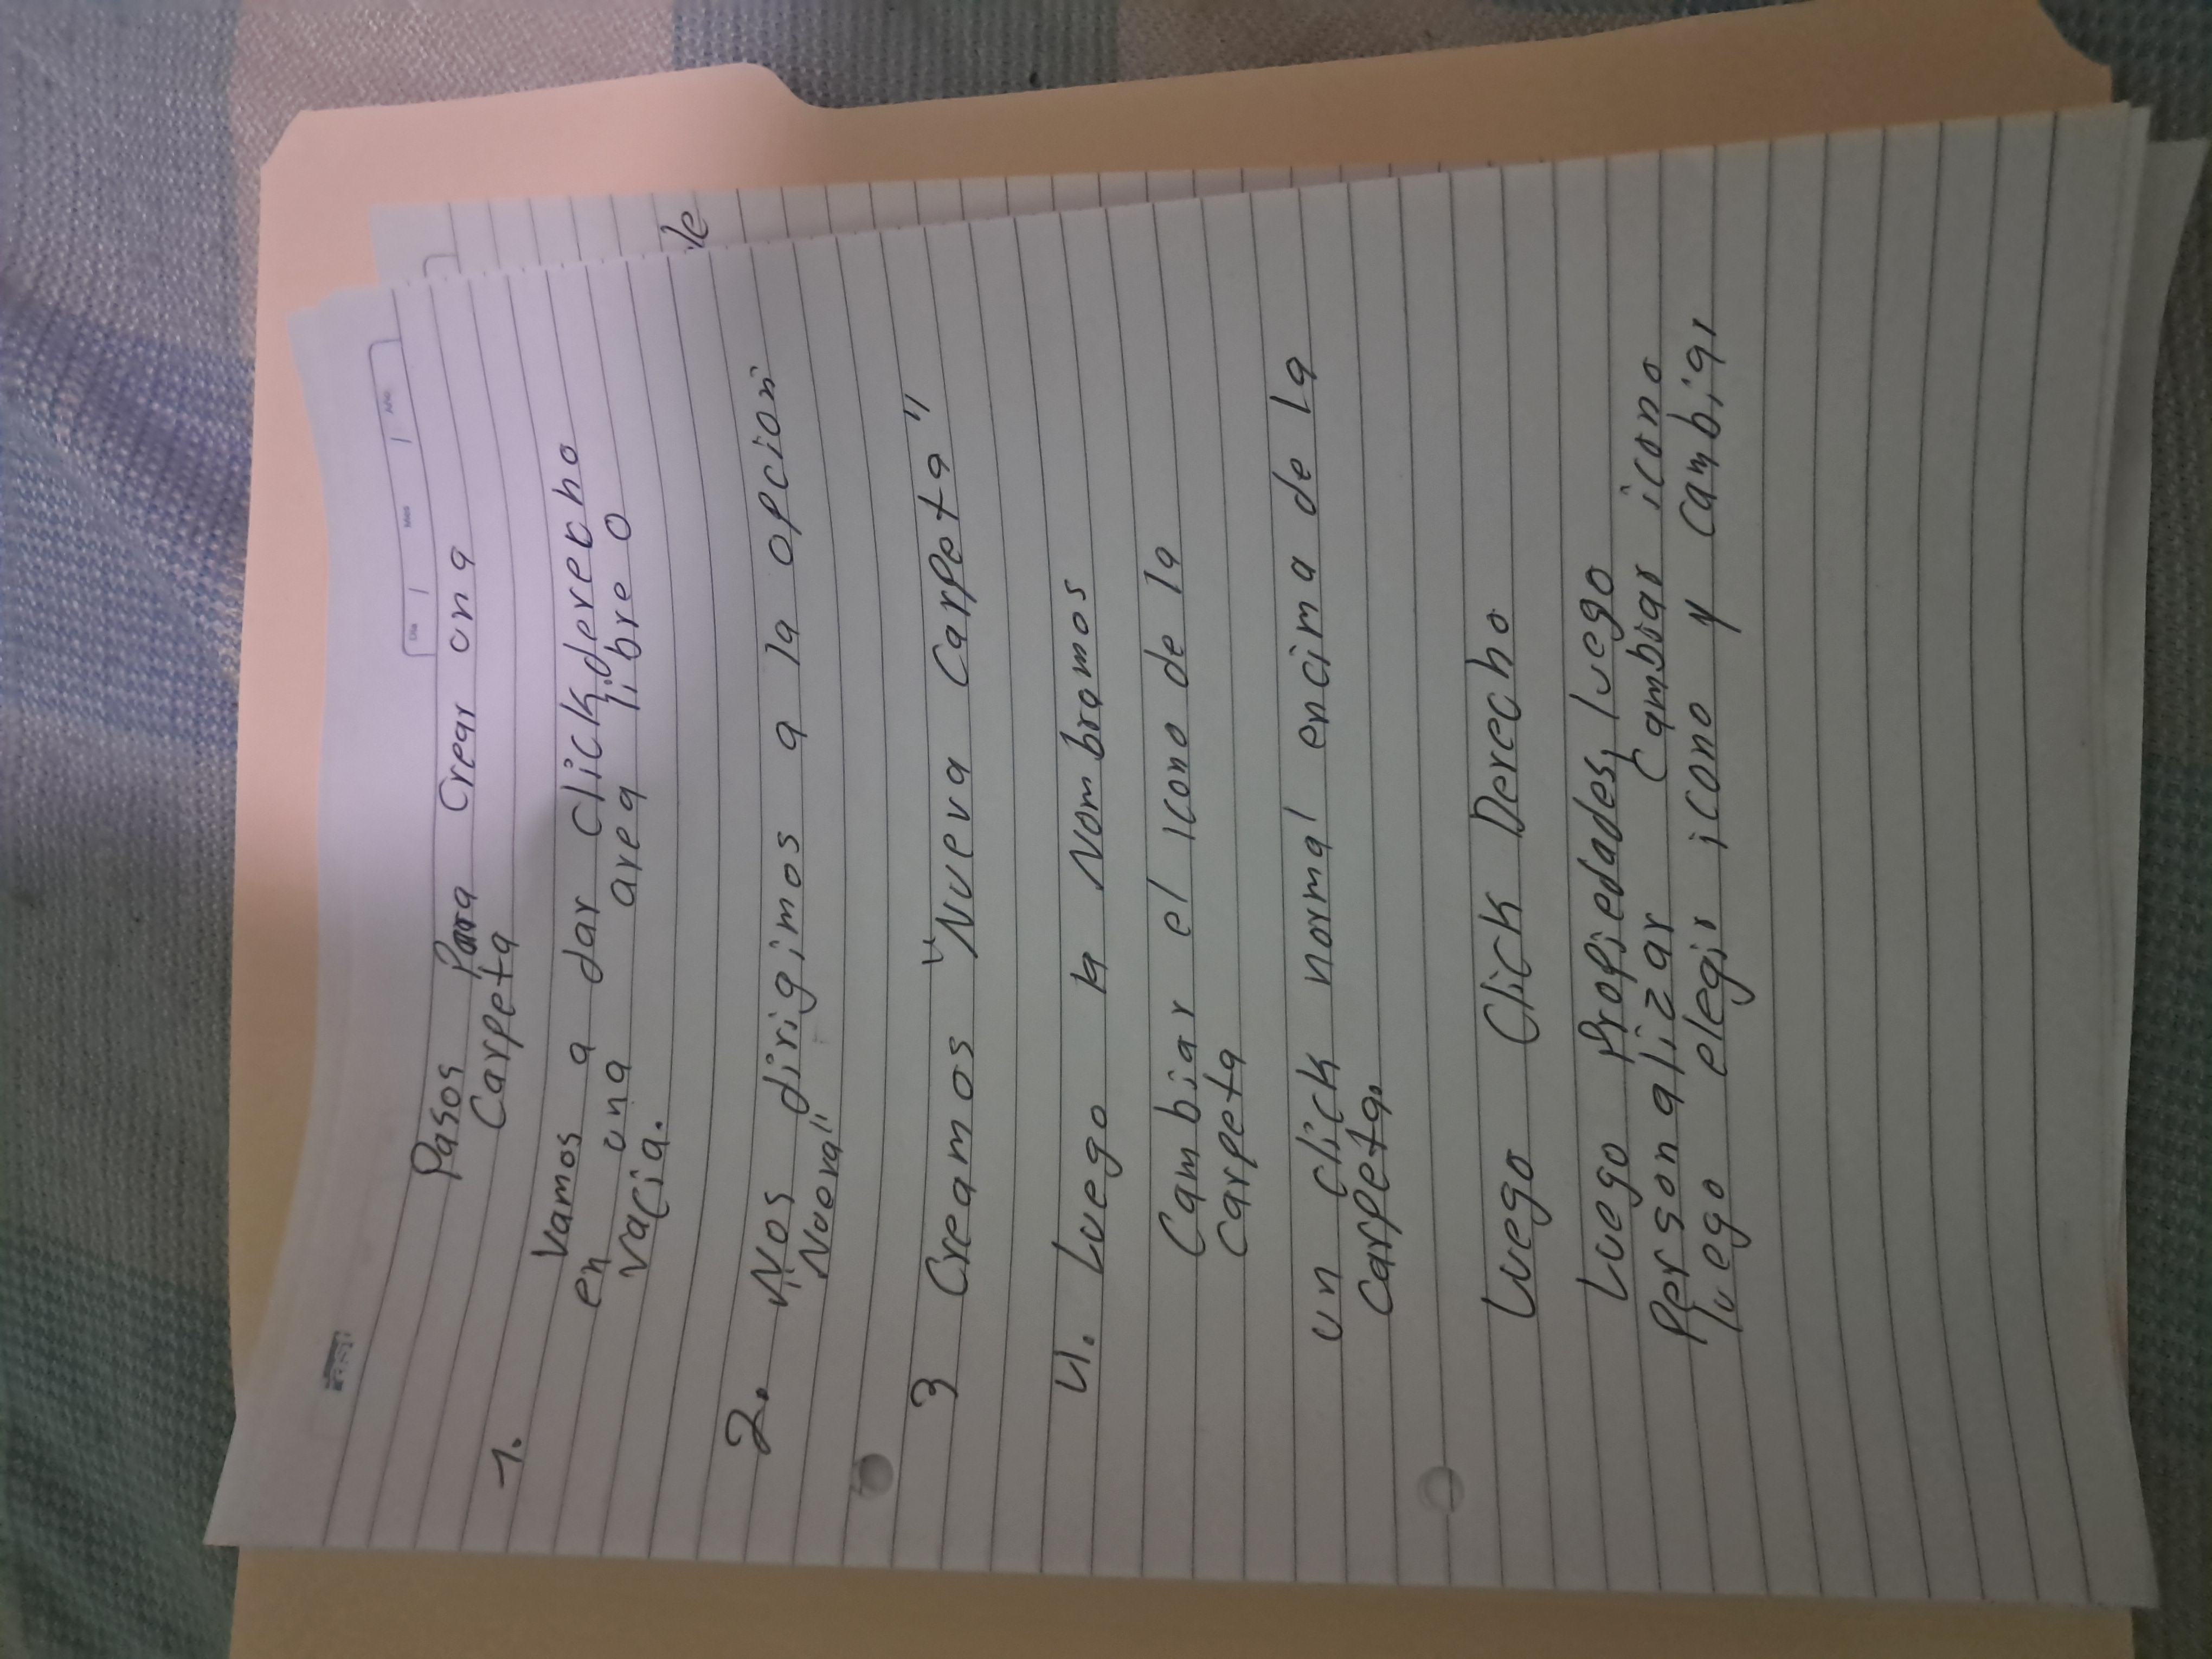 Día Mes Año
Pasos Para Crear una
Carpeta
1.
Vamos a dar click derecho
en una area libre o
vacia.
2. Nos dirigimos a la opción
"Nueva"
3 Creamos "Nueva Carpeta"
4. Luego la Nombramos
Cambiar el icono de la
Carpeta
un click normal encima de la
Carpeta.
Luego Click Derecho
Luego Propiedades, luego
Personalizar Cambiar icono
luego elegir icono y cambiar
de